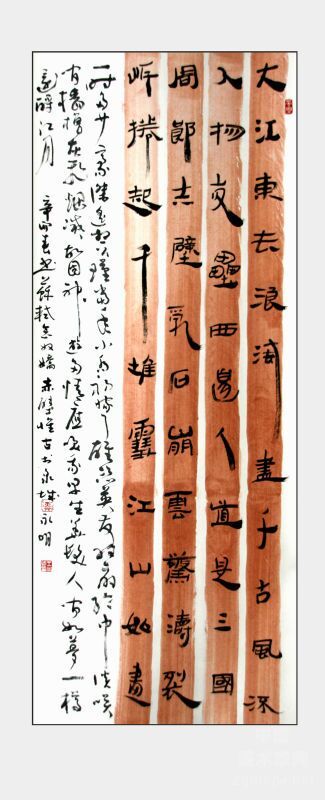 大江東去浪淘盡千古風流
人物故壘西邊人道是三國
周郎赤壁乱石崩雲驚濤裂
岸捲起千堆雪江山如畫
一時多少豪傑遙想公瑾當年小喬初嫁了雄姿英發羽扇綸巾談笑
间檣櫓灰飛烟滅故国神遊多情應笑我早生華髮人间如夢一樽
還酹江月 辛卯春書蘇軾念奴嬌赤壁懷古於泉城 永明